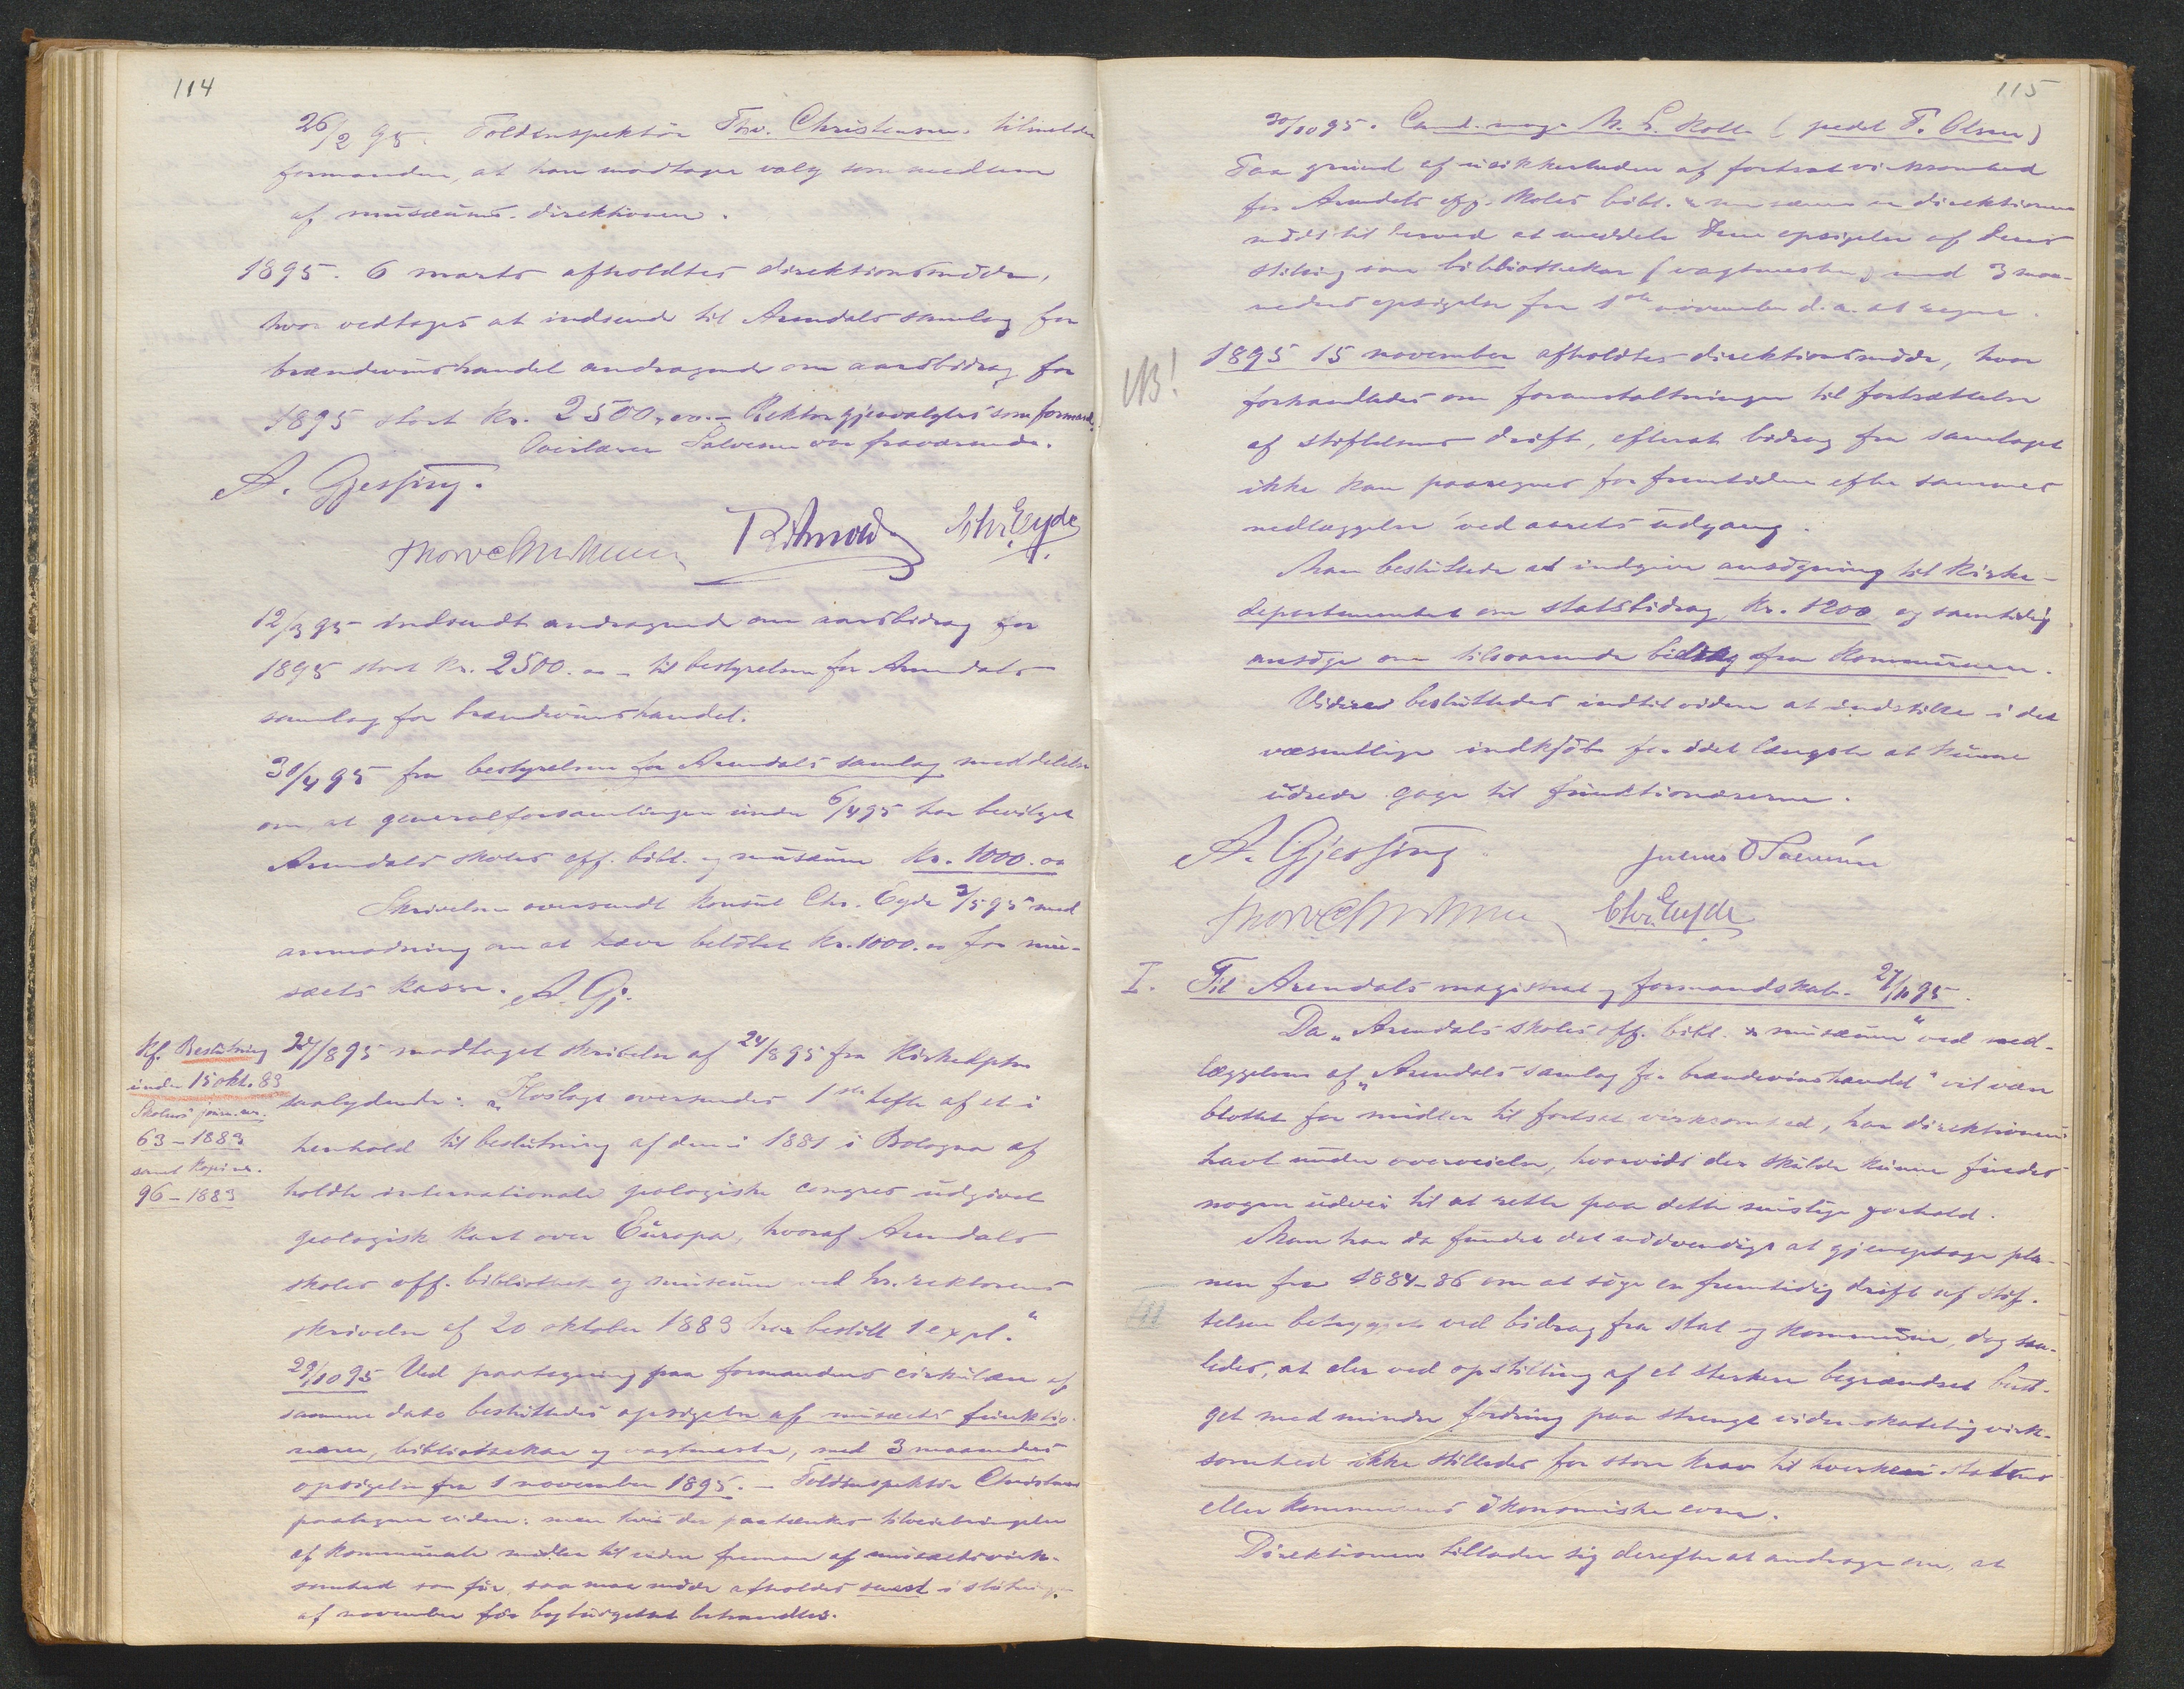 114
26/2 95. Toldinspektör Thv. Christensen tilmelder
formanden, at han modtager valg som medlem
af musæums-direktionen.
1895. 6 marts afholdtes direktionsmöde,
hvor vedtoges at indsende til Arendals samlag for
brændevinshandel andragende om aarsbidrag for
1895 stort kr. 2500,00. – Rektor gjenvalgtes som formand.
Overlærer Salvesen var fraværende.
A. Gjessing.
Chr. Eyde
12/3 95 indsendt andragende om aarsbidrag for
1895 stort kr. 2500.00 – til bestyrelsen for Arendals
samlag for brændevinshandel.
30/4 95 fra bestyrelsen for Arendals samlag meddelelse
om, at generalforsamlingen under 6/4 95 har bevilget
Arendals skoles off. bibl. og musæum kr. 1000.00
Skrivelsen oversendt konsul Chr. Eyde 3/5 95 med
anmodning om at hæve belöbet kr. 1000.00 for mu-
sæets kasse. A. Gj.
Kf. Beslutning
under 15 okt. 83
Skolens journ. nr.
63–1883
samt kopi nr.
96–1883
27/8 95 modtaget skrivelse af 24/8 95 fra Kirkedptm
saalydende: „Hoslagt oversendes 1ste hefte af et i
henhold til beslutning af den i 1881 i Bologna af
holdte internationale geologiske congres udgivet
geologisk kart over Europa, hvoraf Arendals
skoles off. bibliothek og musæum ved hr. rektorens
skrivelse af 20 oktober 1883 har bestilt 1 expl.“
29/10 95 Ved paategning paa formandens cirkulære af
samme dato besluttedes opsigelse af musæets funktio-
nærer, bibliothekar og vagtmester, med 3 maaneders
opsigelse fra 1 november 1895. – Toldinspektör Christensen
paategner videre: men hvis der paatænkes tilveiebringelse
af kommunale midler til videre fremme af musæets virk-
somhed som för, saa maa möde afholdes senest i slutningen
af november för bybudgettet behandles.
115
30/10 95. Cand. mag. M. S. Kolle (pedel T. Olsen)
Paa grund af usikkerheden af fortsat virksomhed
for Arendals off. skoles bibl. & musæum er direktionen
nödt til herved at meddele Dem opsigelse af Deres
stilling som bibliothekar (vagtmester) med 3 maa-
neders opsigelse fra 1ste november d.a. at regne.
NB!
1895 15 november afholdtes direktionsmöde, hvor
forhandledes om foranstaltninger til fortsættelse
af stiftelsens drift, efterat bidrag fra samlaget
ikke kan paaregnes for fremtiden efter sammes
nedlæggelse ved aarets udgang.
Man besluttede at indgive ansögning til Kirke-
departementet om statsbidrag, kr. 1200 og samtidig
ansöge om tilsvarende bidrag fra kommunen.
Videre besluttedes indtil videre at indstille i det
væsentlige indkjöb for i det længste at kunne
udrede gage til funktionærerne.
A. Gjessing
Chr. Eyde
I. Til Arendals magistrat og formandskab. 27/11 95.
Da „Arendals skoles off. bibl. & musæum“ ved ned-
læggelsen af „Arendals samlag for brændevinshandel“ vil være
blottet for midler til fortsat virksomhed, har direktionen
havt under overveielse, hvorvidt der skulde kunne findes
nogen udvei til at rette paa dette mislige forhold.
Man har da fundet det nödvendigt at gjenoptage pla-
nen fra 1884–86 om at söge en fremtidig drift af stif-
telsen betrygget ved bidrag fra stat og kommune, dog saa-
ledes, at der ved opstilling af et sterkere begrændset bud-
get med mindre fordring paa strengt videnskabelig virk-
somhed ikke stilledes for store krav til hverken statens
eller kommunens ökonomiske evne.
Direktionen tillader sig derefter at andrage om, at